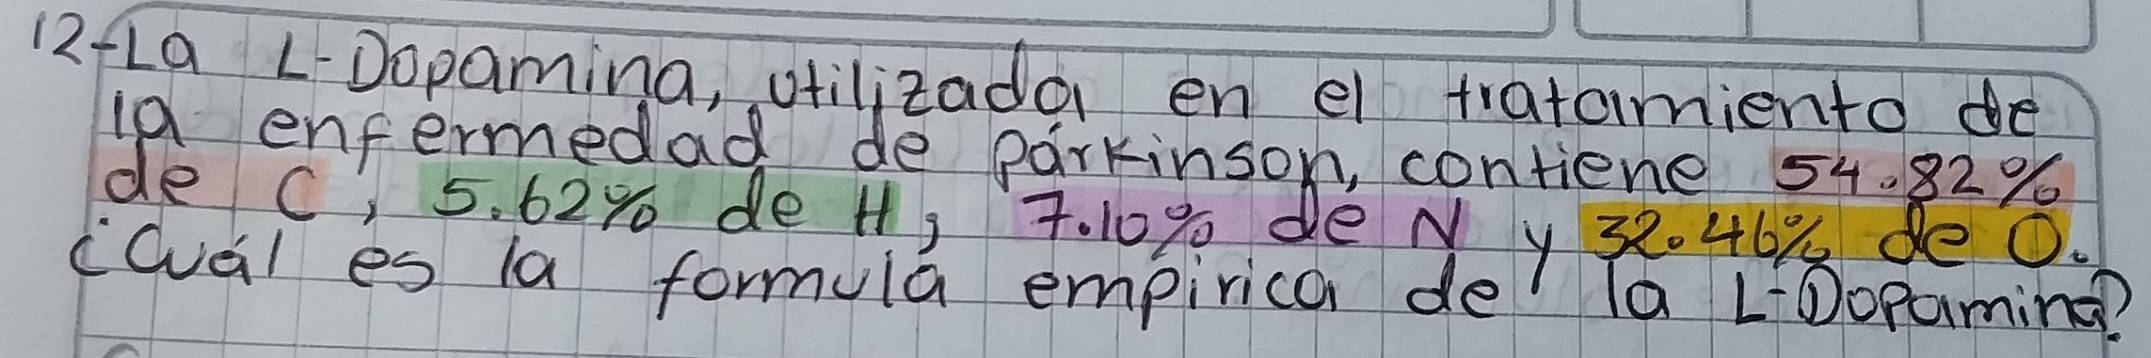 12-La L-Dopamina, utilizada en el tratamiento de
la enfermedad de párkinson, contiene 54.82%
de C, 5.62% de H, 7.10% de N y 32.46% de O.
¿Cuál es la formula empirica de la L-Dopamina?